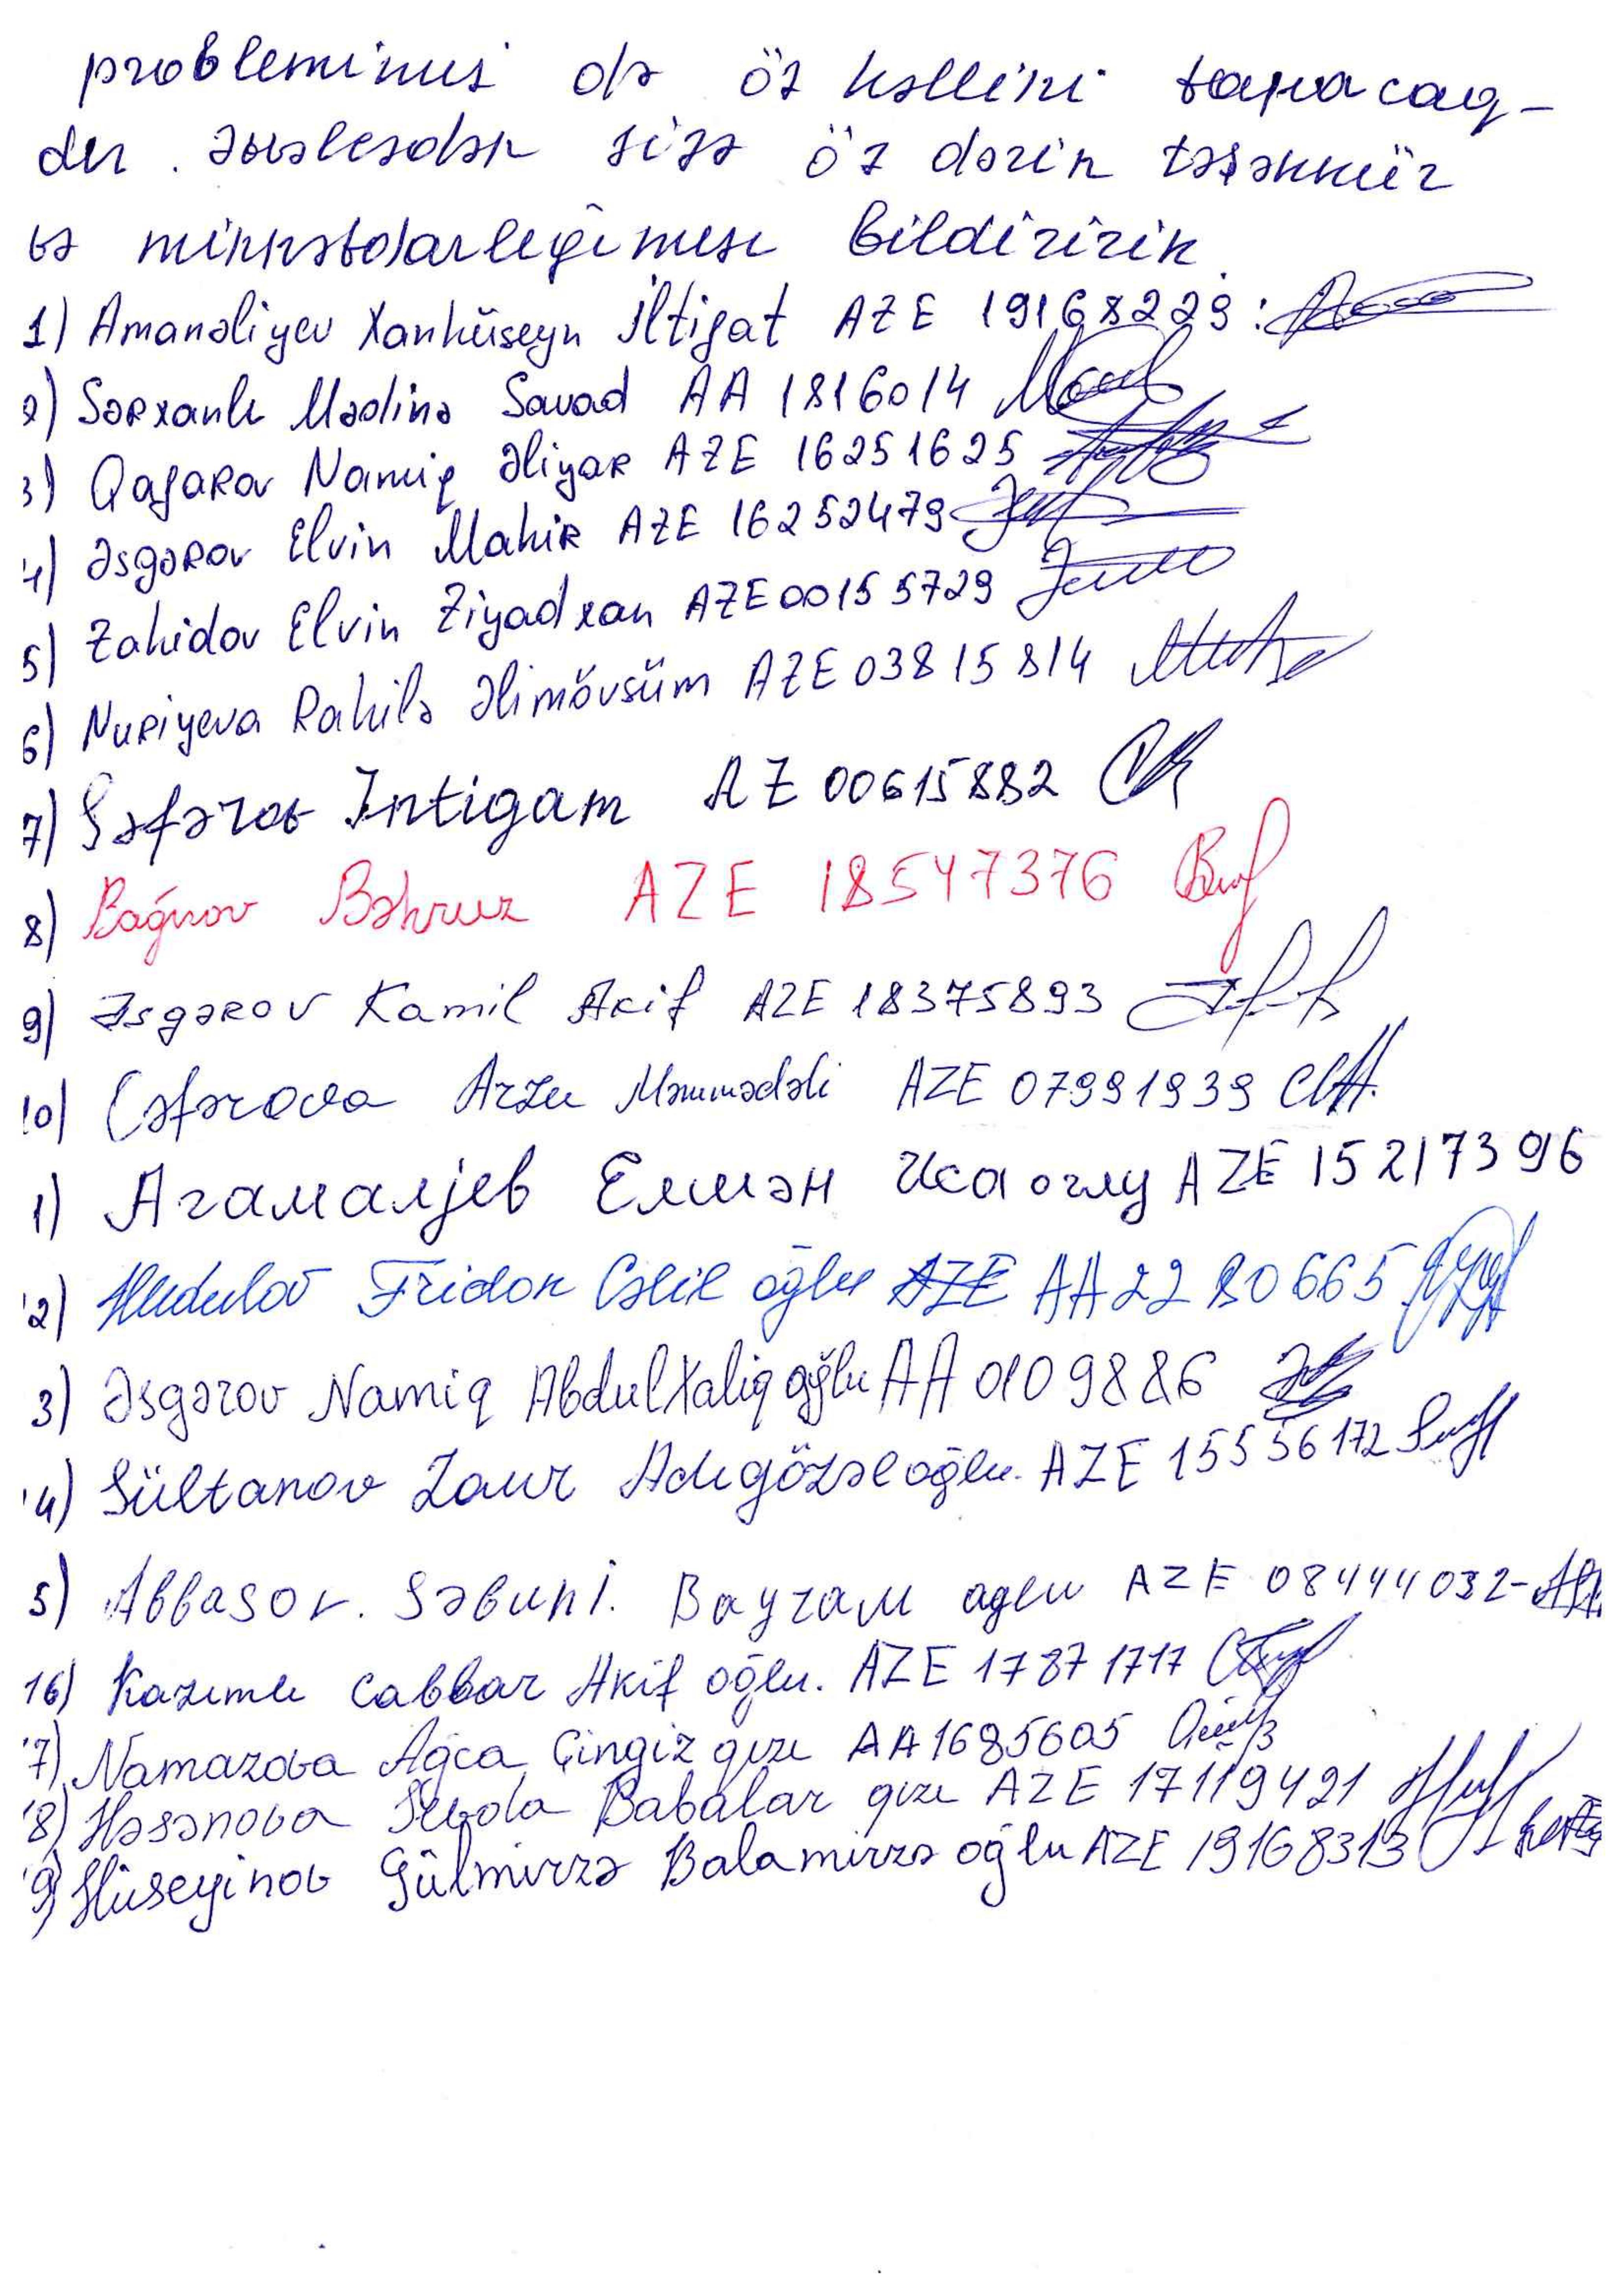 probleminizi də öz həllini tapacaq-
dır. Əvvəlcədən sizə öz dərin təşəkkür
və minnətdarlığımızı bildiririk.
1) Amanəliyev Xanhüseyn İltifat AZE 19168229:
2) Sərxanlı Mədinə Savad AA 1816014
3) Qafarov Namiq Əliyar AZE 16251625
4) Əsgərov Elvin Mahir AZE 16252479
5) Zahidov Elvin Ziyadxan AZE 00155729
6) Nuriyeva Rahilə Əlimövsüm AZE 03815814
7) Səfərov Intigam AZ 00615882
8) Bağırov Bəhruz AZE 18547376
9) Əsgərov Kamil Akif AZE 18375893
10) Cəfərova Arzu Məmmədəli AZE 07991939
1) Агамалјев Елшән Иса оглу AZE 15217396
2) Fridon Cəlil oğlu AZE AA 2280665
3) Əsgərov Namiq Abdulxaliq oğlu AA 0109886
4) Sültanov Zaur Adıgözəl oğlu. AZE 15556172
5) Abbasov. Bayram aglu AZE 08444032-
16) Kazımlı Cabbar Akif oğlu. AZE 17871717
7) Namazova Ağca Çingiz qızı AA 1685605
8) Həsənova Sevda Babalar qızı AZE 17119421
9) Hüseyinov Gülmirzə Balamirzə oğlu AZE 19168313